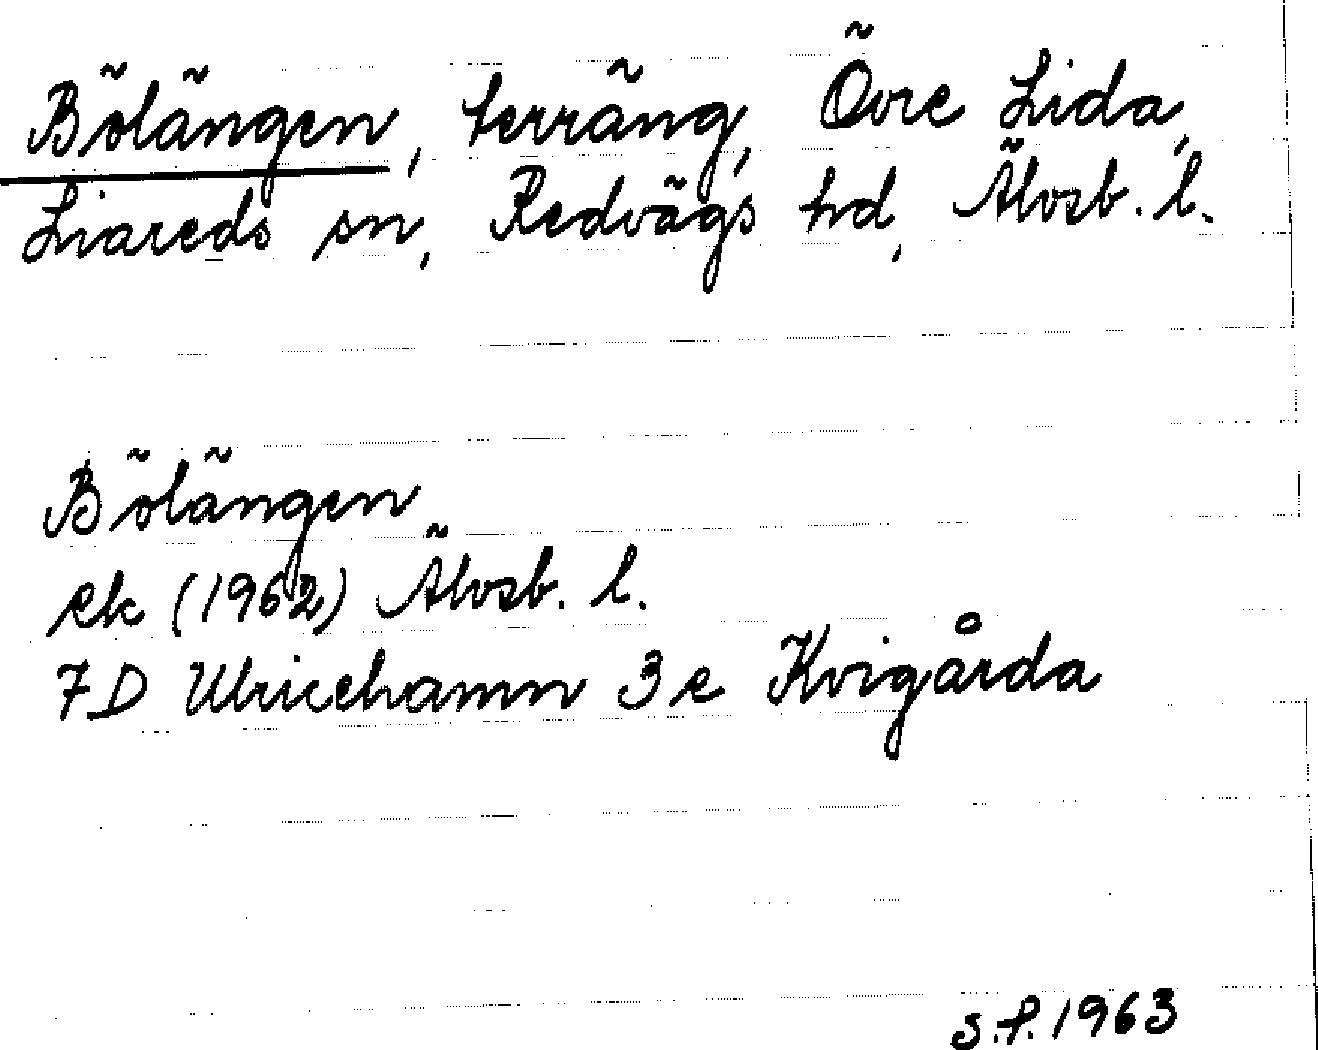 Bölängen, terräng, Övre Lida,
Liareds sn, Redvägs hd, Älvsb. l.
Bölängen
ek (1962) Älvsb. l.
7D Ulricehamn 3e Kvigårda
S.F. 1963